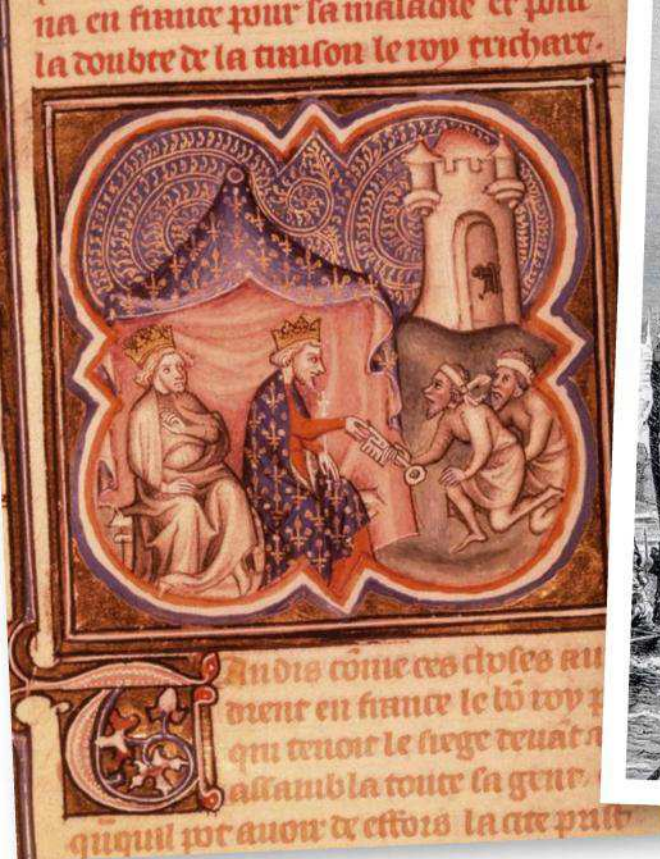 na en france pour sa maladie et pour
la doubte de la traison le roy trichart.
Tandis cōme ces choses au
drent en france le bō roy p
qui tenoit le siege deuāt a
assambla toute sa gent
quāquil pot auoir deffors la cite prist